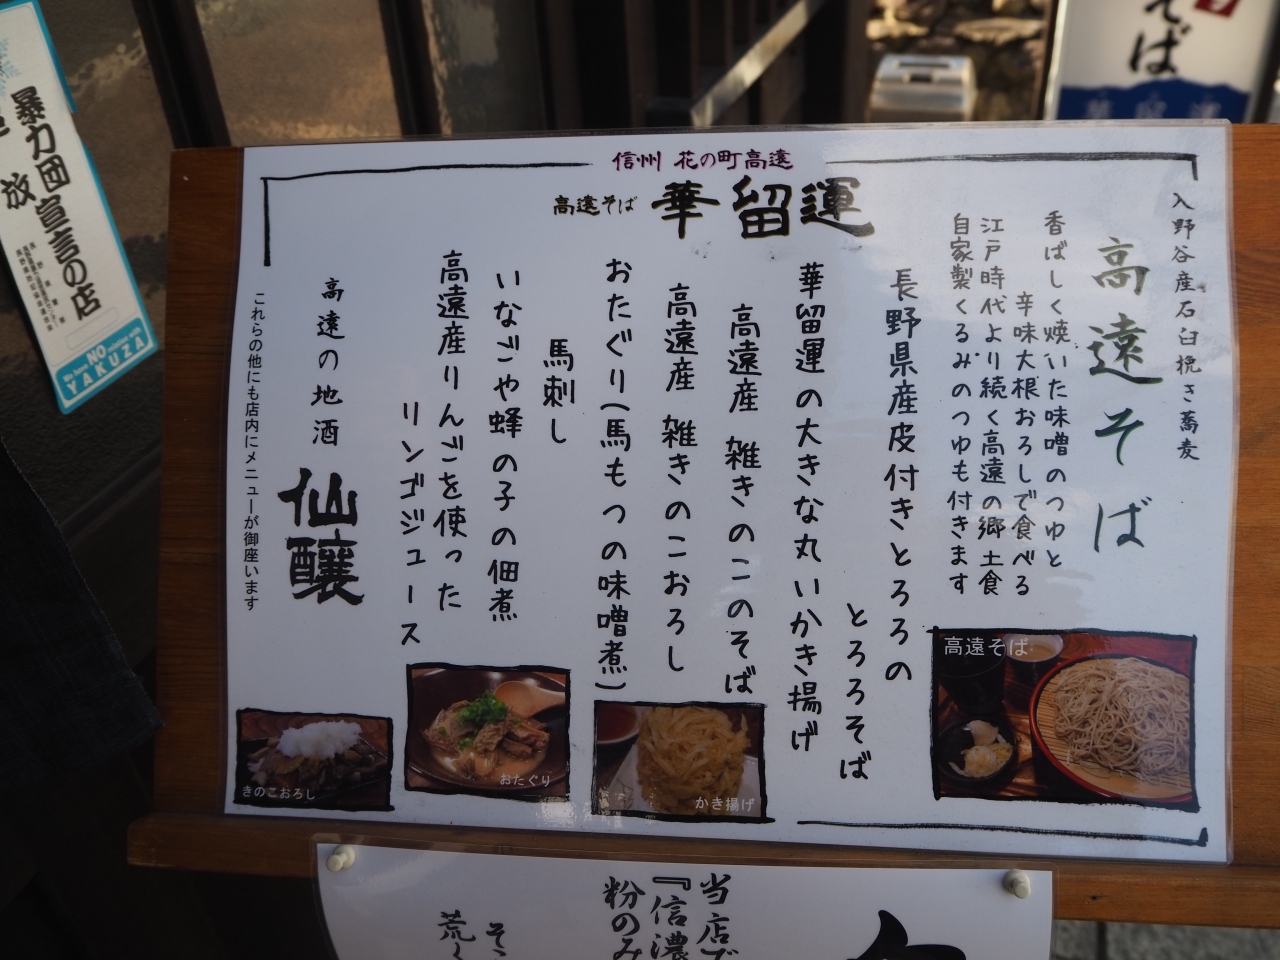 信州 花の町高遠
高遠そば 華留運
入野谷産石臼挽き蕎麦
高遠そば
香ばしく焼いた味噌のつゆと
辛味大根おろしで食べる
江戸時代より続く高遠の郷土食
自家製くるみのつゆも付きます
長野県産皮付きとろろの
とろろそば
華留運の大きな丸いかき揚げ
高遠産 雑きのこのそば
高遠産 雑きのこおろし
おたぐり(馬もつの味噌煮)
馬刺し
いなごや蜂の子の佃煮
高遠産りんごを使った
リンゴジュース
高遠の地酒 仙醸
これらの他にも店内にメニューが御座います
高遠そば
かき揚げ
おたぐり
きのこおろし
暴力団
放
宣言の店
NO
YAKUZA
そば
当店で
『信濃
粉のみ
そ
荒